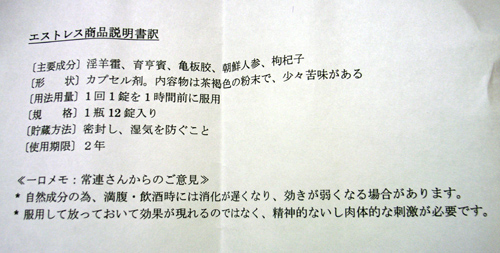 エストレス商品説明書訳
〔主要成分〕淫羊霍、育亨賓、亀板胶、朝鮮人参、枸杞子
〔形　　状〕カプセル剤。内容物は茶褐色の粉末で、少々苦味がある
〔用法用量〕1回1錠を1時間前に服用
〔規　　格〕1瓶12錠入り
〔貯蔵方法〕密封し、湿気を防ぐこと
〔使用期限〕2年
≪一口メモ：常連さんからのご意見≫
* 自然成分の為、満腹・飲酒時には消化が遅くなり、効きが弱くなる場合があります。
* 服用して放っておいて効果が現れるのではなく、精神的ないし肉体的な刺激が必要です。